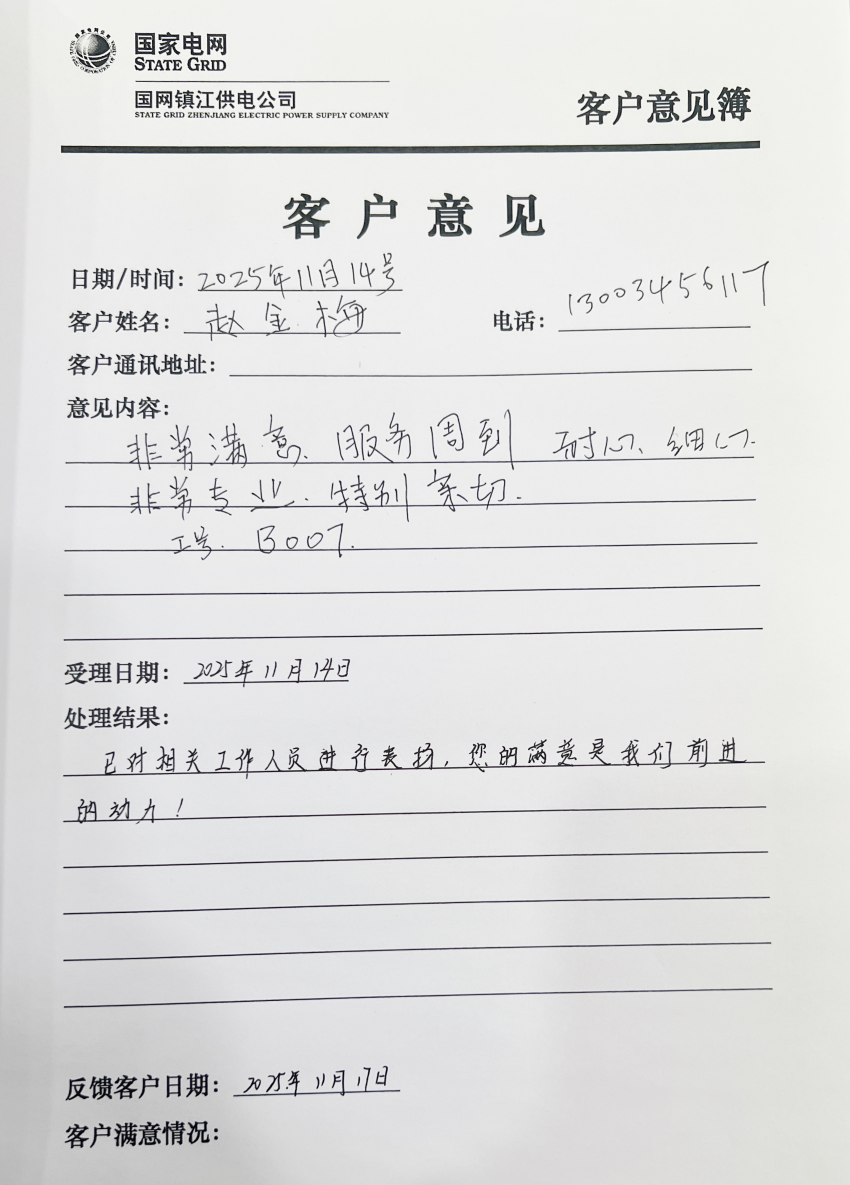 国家电网
STATE GRID
国网镇江供电公司
STATE GRID ZHENJIANG ELECTRIC POWER SUPPLY COMPANY
客户意见簿
客户意见
日期/时间：2025年11月14号
客户姓名：赵金梅 电话：13003456117
客户通讯地址：
意见内容：
非常满意、服务周到 耐心、细心.
非常专业.特别亲切.
工号.B007.
受理日期：2025年11月14日
处理结果：
已对相关工作人员进行表扬，您的满意是我们前进
的动力！
反馈客户日期：2025年11月17日
客户满意情况：